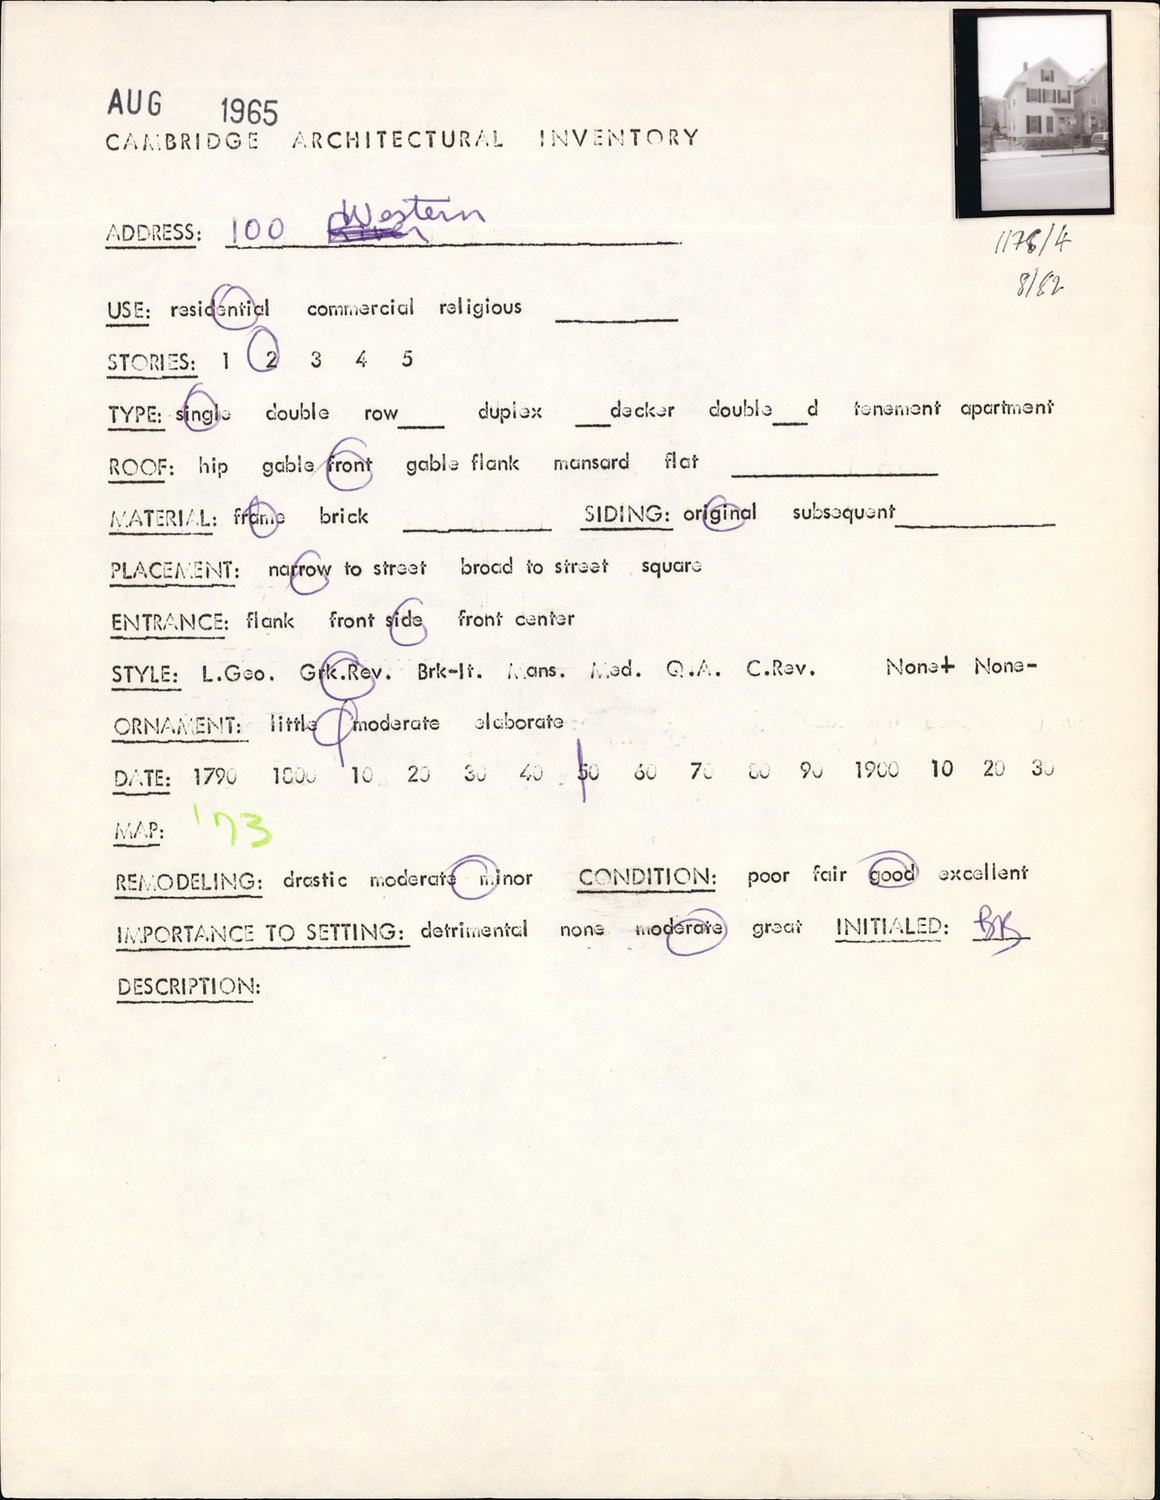 AUG 1965
CAMBRIDGE ARCHITECTURAL INVENTORY
Western
ADDRESS: 100 River
1176/4
8/82
USE: residential commercial religious
STORIES: 1 2 3 4 5
TYPE: single double row____ duplex ___decker double___d tenement apartment
ROOF: hip gable front gable flank mansard flat
MATERIAL: frame brick ____________ SIDING: original subsequent____________
PLACEMENT: narrow to street broad to street square
ENTRANCE: flank front side front center
STYLE: L.Geo. Grk.Rev. Brk-It. Mans. Med. Q.A. C.Rev. None+ None-
ORNAMENT: little moderate elaborate
DATE: 1790 1800 10 20 30 40 50 60 70 80 90 1900 10 20 30
MAP: '73
REMODELING: drastic moderate minor CONDITION: poor fair good excellent
IMPORTANCE TO SETTING: detrimental none moderate great INITIALED: BR
DESCRIPTION: